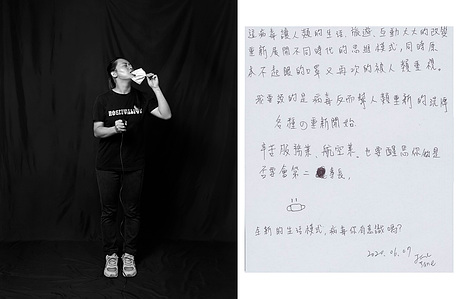 這病毒讓人類的生活、旅遊、互動大大的改變
重新展開不同時代的思維模式，同時原
本不起眼的口罩又再次的被人類重視。
我要說的是病毒反而幫人類重新的選擇
各種の重新開始
辛苦服務業、航空業、也要醒品你做是
否學會第二專長。
全新的生活模式，病毒你有意識嗎?
2020.06.07